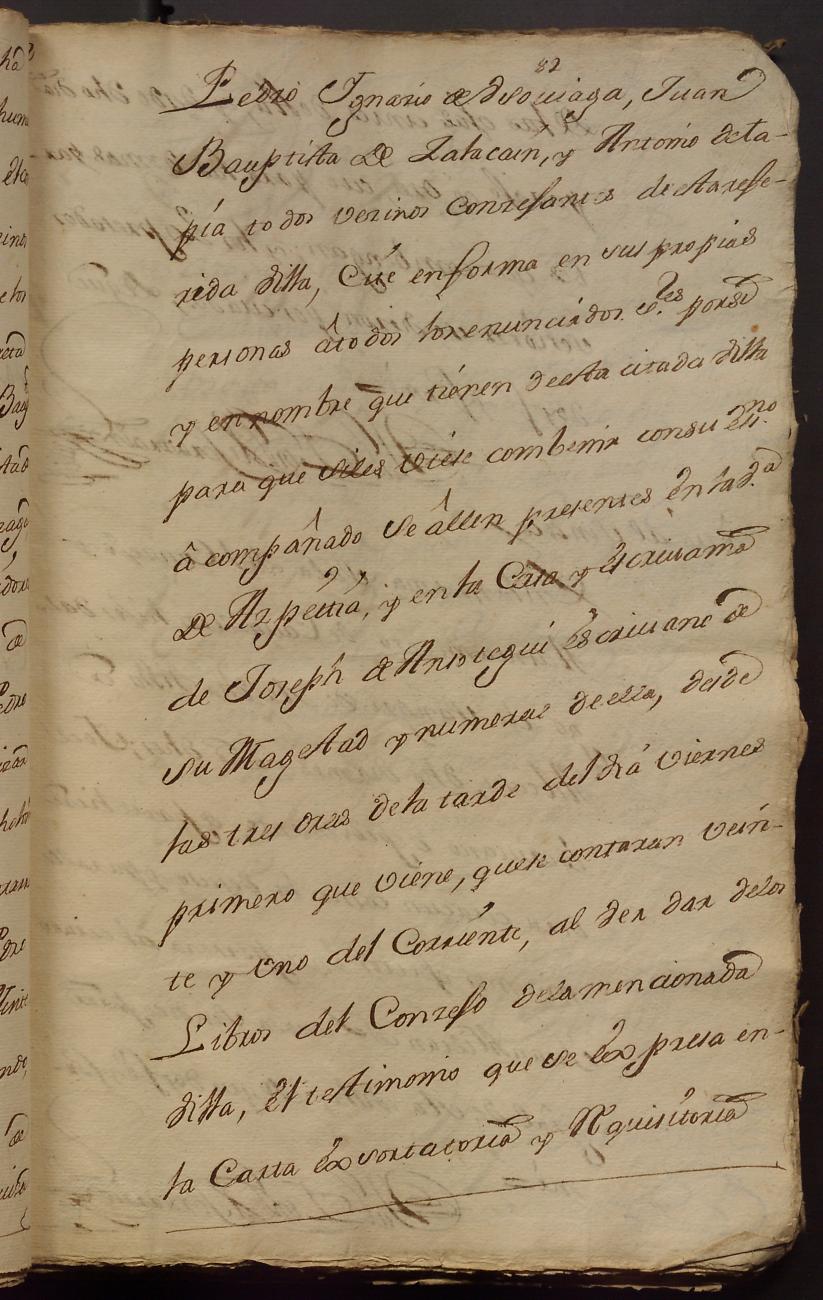 82
Pedro Ygnacio de Usouiaga, Juan
Bauptista De Zalacain, y Antonio de ta-
pia todos vecinos concejantes de esta refe-
rida Villa, Cité en forma en sus propias
personas â todos los enunciados SS.res por sí
y en nombre que tienen de esta citada Villa
para que si les viese combenir con su Esn.no
â compañado se âllen presentes en la d.a
De Azpeitia, y en la Casa y Escrivama
de Joseph de Ansotegui Escrivano de
su Magestad y numeral de ella, desde
las tres oras de la tarde del dia viernes
primero que viene, que se contaran vein-
te y uno del Corriente, al ver dar de los
Libros del Concejo de la mencionada
Villa, el testimonio que se expresa en
la Carta exsortatoria y Rquisitoria